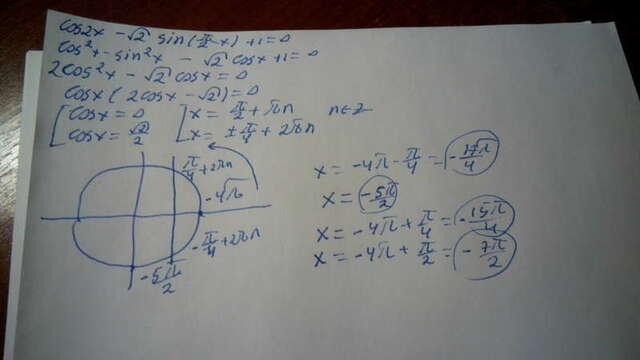 cos2x - √2 sin(π/2 - x) + 1 = 0
cos²x - sin²x - √2 cosx + 1 = 0
2cos²x - √2 cosx = 0
cosx (2cosx - √2) = 0
[ cosx = 0 [ x = π/2 + πn n∈Z
cosx = √2/2 x = ± π/4 + 2πn
π/4 + 2πn
-4π
-π/4 + 2πn
-5π/2
x = -4π - π/4 = -17π/4
x = -5π/2
x = -4π + π/4 = -15π/4
x = -4π + π/2 = -7π/2